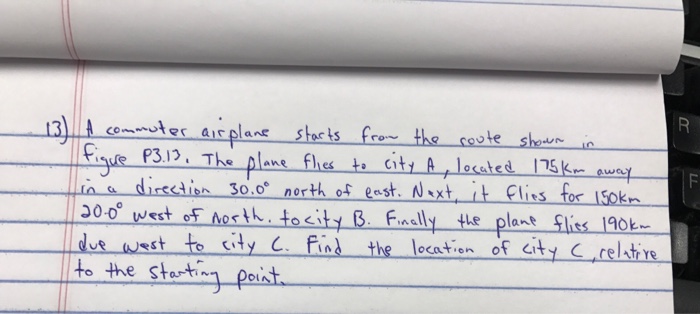 13) A commuter airplane starts from the route shown in
figure P3.13. The plane flies to city A, located 175km away
in a direction 30.0° north of east. Next, it flies for 150km
20.0° west of north. to city B. Finally the plane flies 190km
due west to city C. Find the location of city C, relative
to the starting point.
R
F